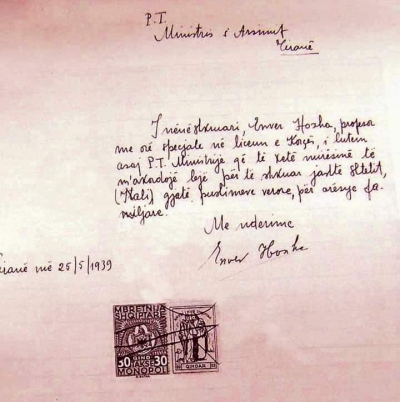 P.T.
Ministris i Arsimit
Tiranë
I nënështruari, Enver Hoxha, profesor
me orë speciale në liceun e Korçës, i lutem
asaj P.T. Ministrije që të ketë mirësinë të
m'akordojë lejë për të shkuar jashtë Shtetit,
(Itali) gjatë pushimeve verore, për arësye fa-
miljare.
Me nderime
Enver Hoxha
Tiranë më 25/5/1939
MBRETNIJA
SHQIPTARE
50 30
MONOPOL
QINDAR